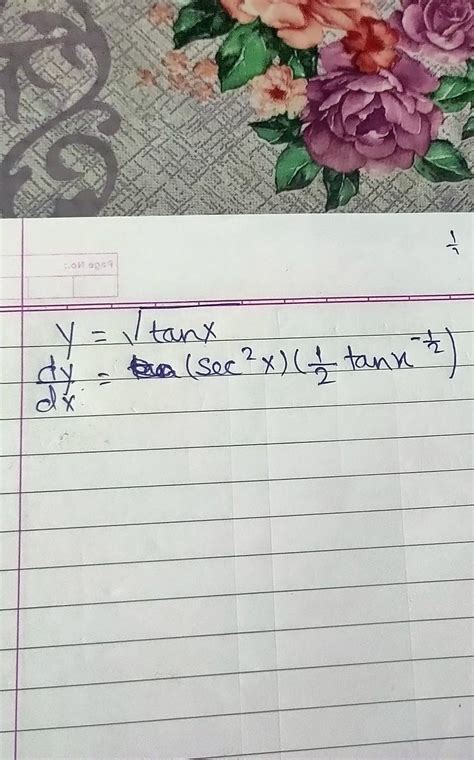 Page No.:
1/2
y = √tanx
dy/dx = (sec²x)(1/2 tanx^-1/2)